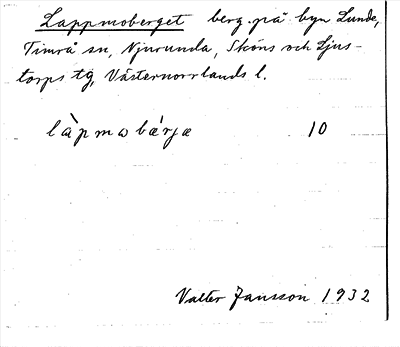 Lappmoberget berg på byn Lunde,
Timrå sn, Njurunda, Sköns och Ljus-
torps tg, Västernorrlands l.
là̀pmωbǽrjæ 10
Valter Jansson 1932